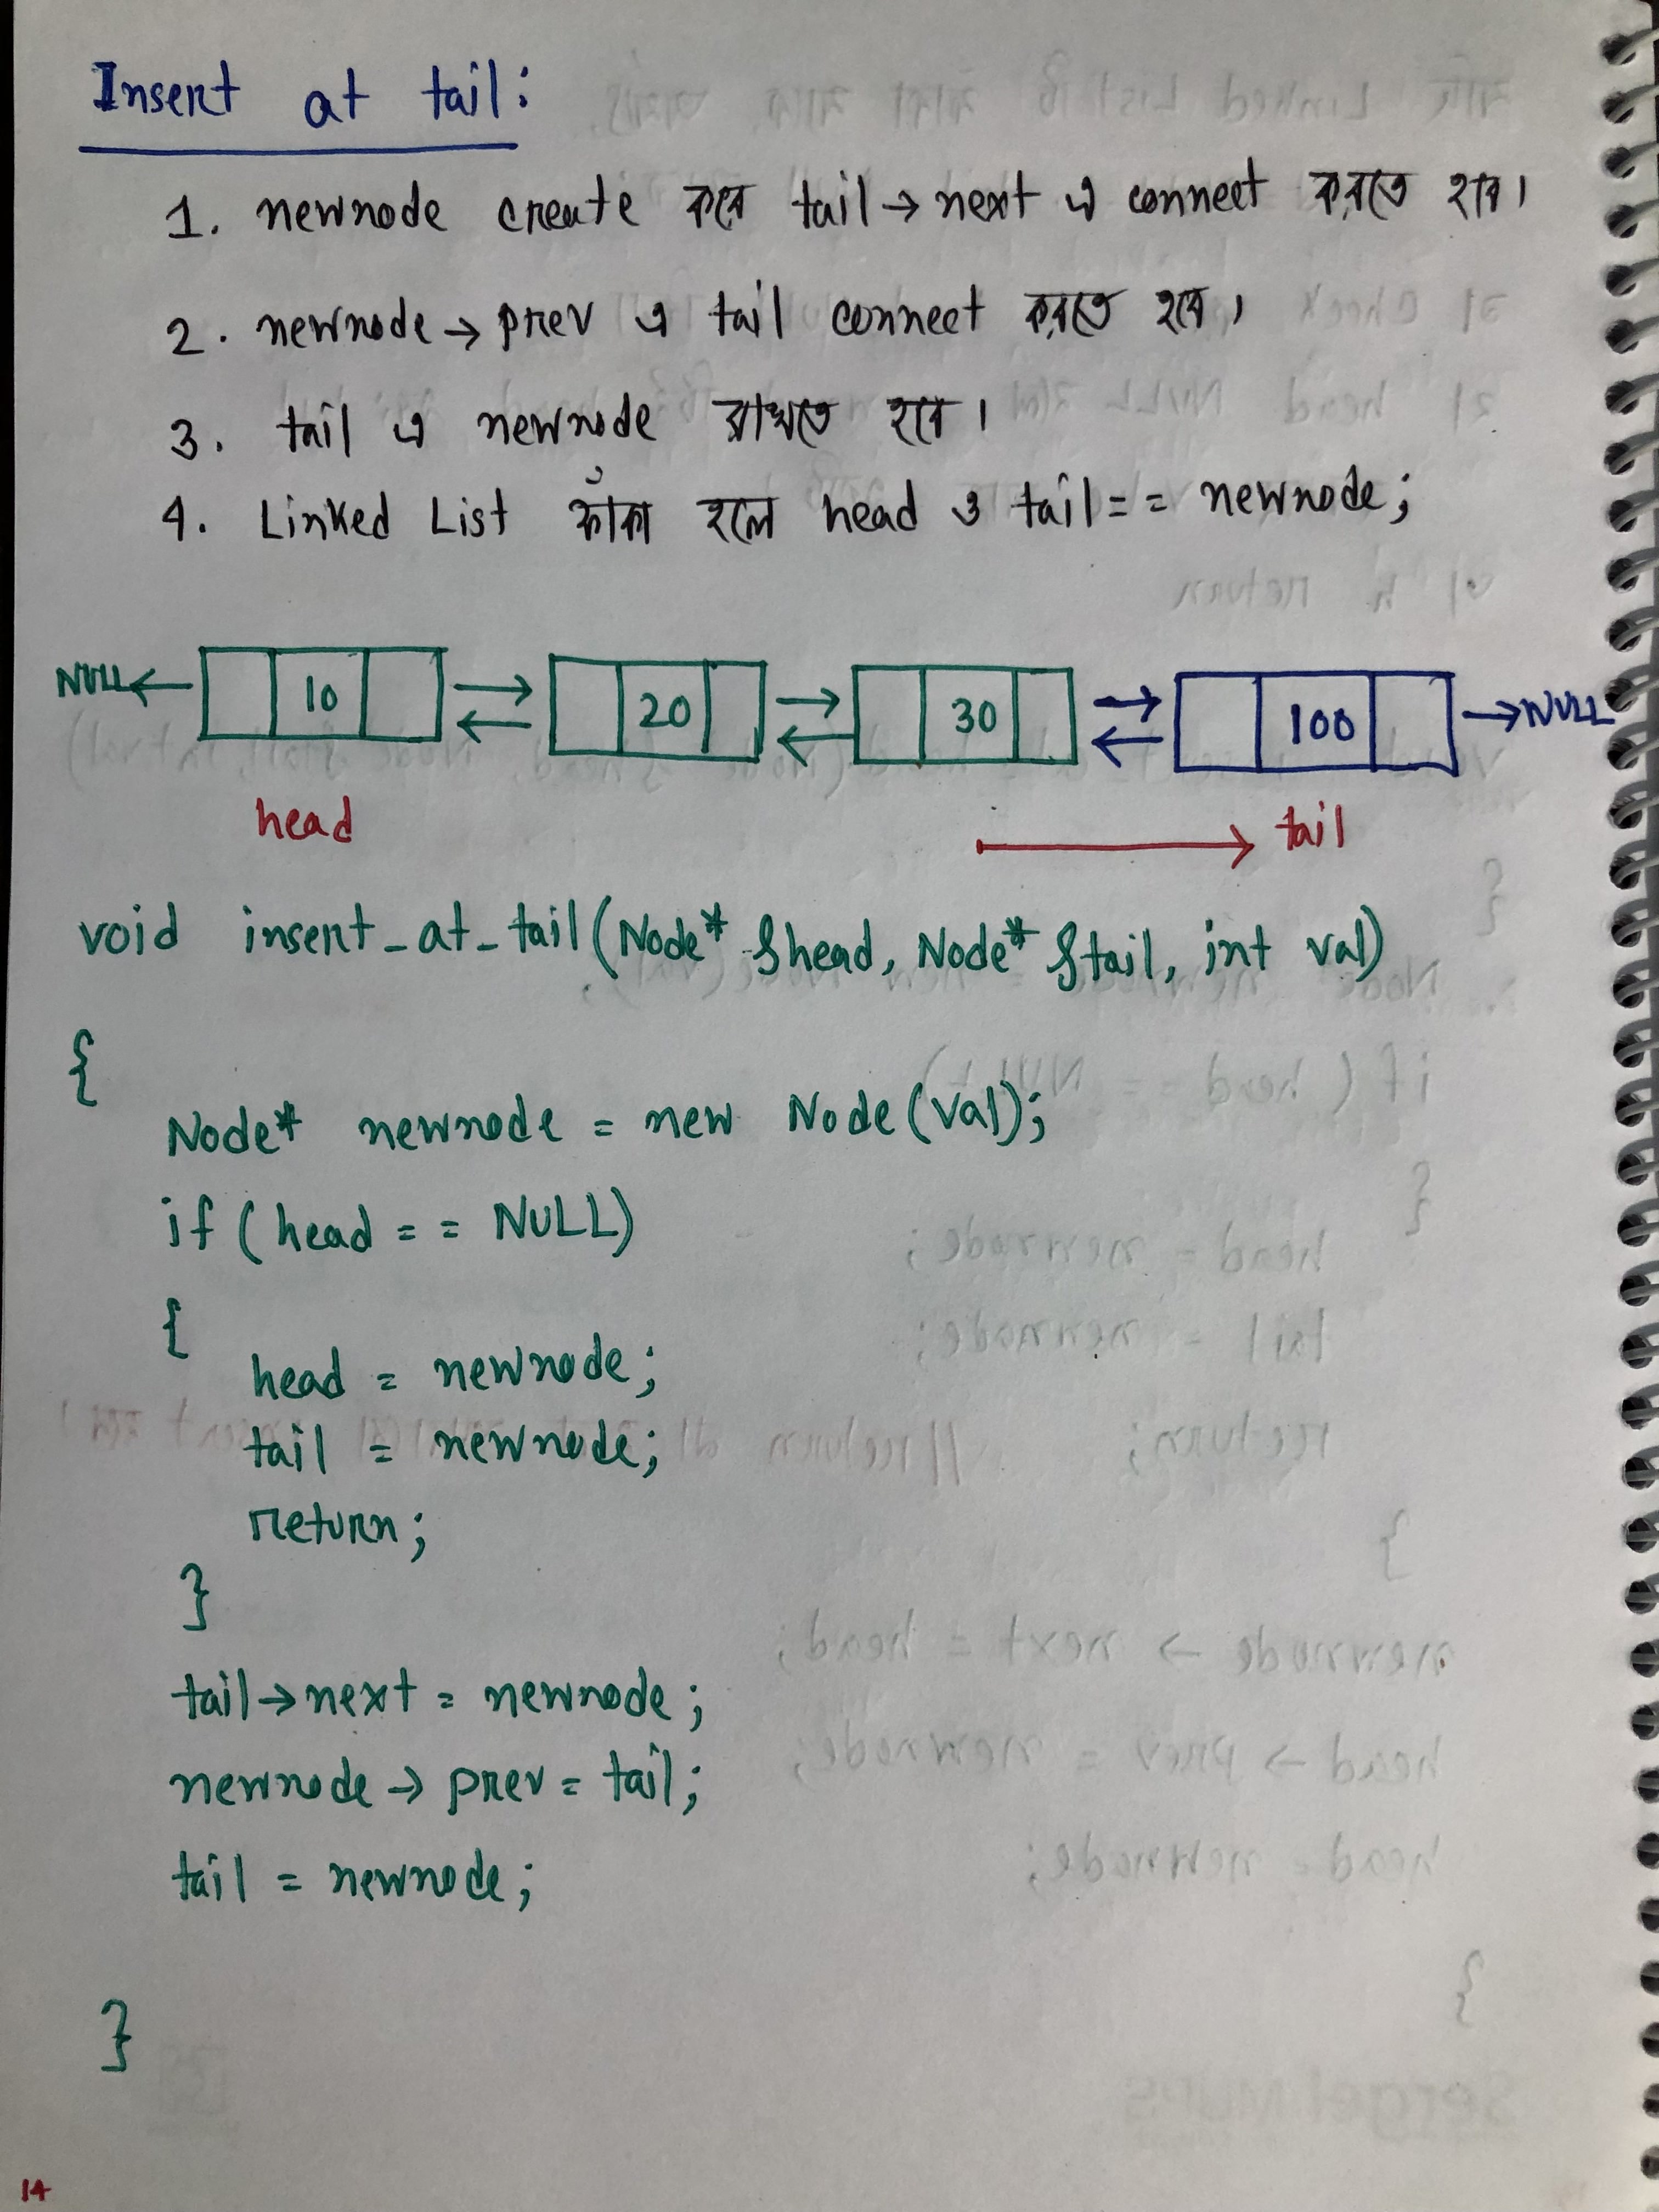 Insert at tail:
1. newnode create করে tail→next এ connect করতে হবে।
2. newnode→prev এ tail connect করতে হবে।
3. tail এ newnode রাখতে হবে।
4. Linked List ফাঁকা হলে head ও tail== newnode;
NULL← 10 20 30 100 →NULL
head → tail
void insert_at_tail(Node* &head, Node* &tail, int val)
{
Node* newnode = new Node(val);
if (head == NULL)
{
head = newnode;
tail = newnode;
return;
}
tail→next = newnode;
newnode→prev = tail;
tail = newnode;
}
14